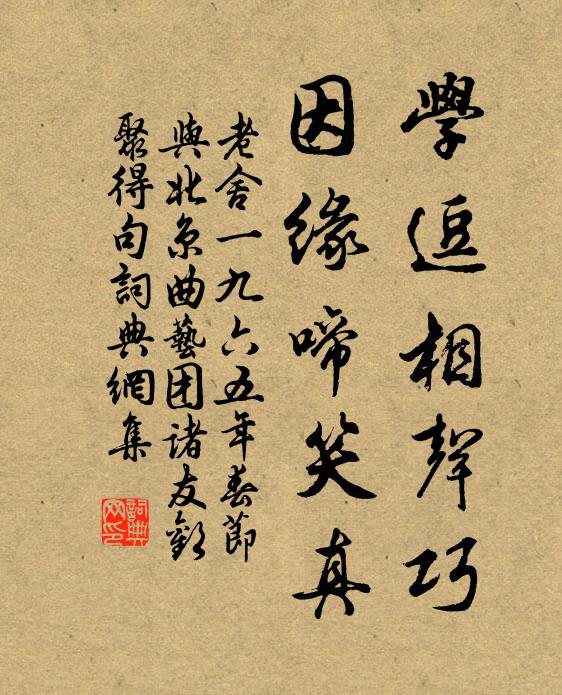 學逗相聲巧
因緣啼笑真
老舍一九六五年春節
與北京曲藝团諸友歡
聚得句詞典網集
詞典网印